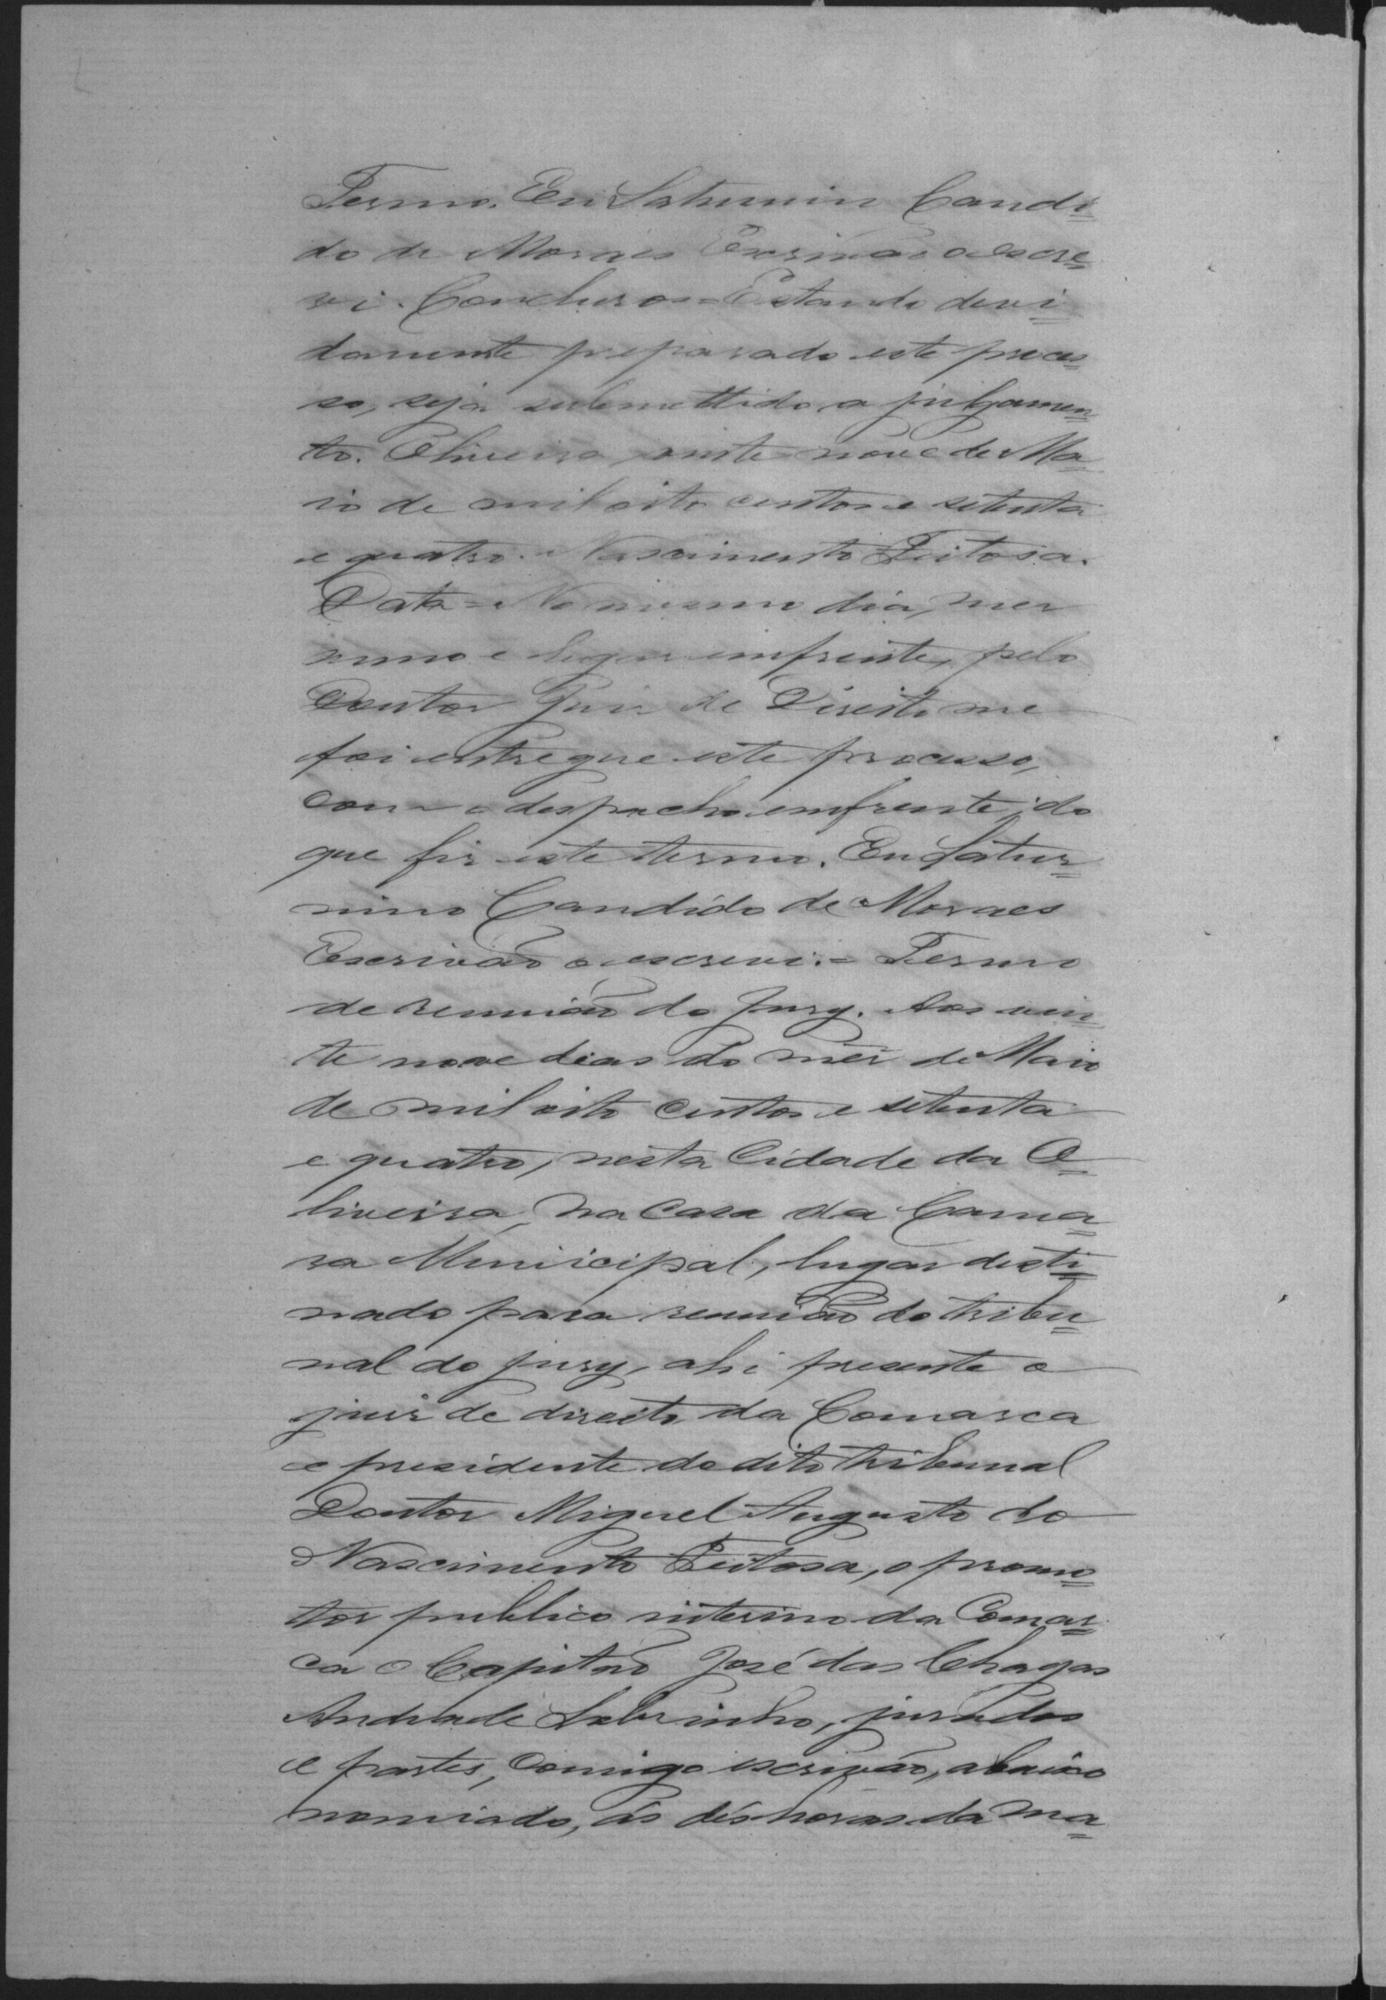 Termo. Eu Saturnino Candi=
do de Moraes Escrivão o escre=
vi. Conclusos = Estando devi=
damente preparado este proces=
so, seja submettido a julgamen=
to. Oliveira, vinte nove de Ma=
io de mil oito centos e setenta
e quatro. Nascimento Feitosa.
Data = No mesmo dia, mez
anno e lugar emfrente, pelo
Doutor Juiz de Direito me
foi entregue este processo,
com o despacho emfrente; do
que fiz este termo. Eu Satur=
nino Candido de Moraes
Escrivão o escrevi. = Termo
de reunião do Jury. Aos vin=
te nove dias do mez de Maio
de mil oito centos e setenta
e quatro, nesta Cidade da O=
liveira, na casa da Cama=
ra Municipal, lugar desti=
nado para reunião do tribu=
nal do jury, ahi presente o
juiz de direito da Comarca
e presidente do dito tribunal
Doutor Miguel Augusto do
Nascimento Feitosa, o promo=
tor publico interino da Comar=
ca o Capitão José das Chagas
Andrade Sobrinho, jurados
e partes, comigo escrivão, abaixo
nomiado, ás dés horas da ma=